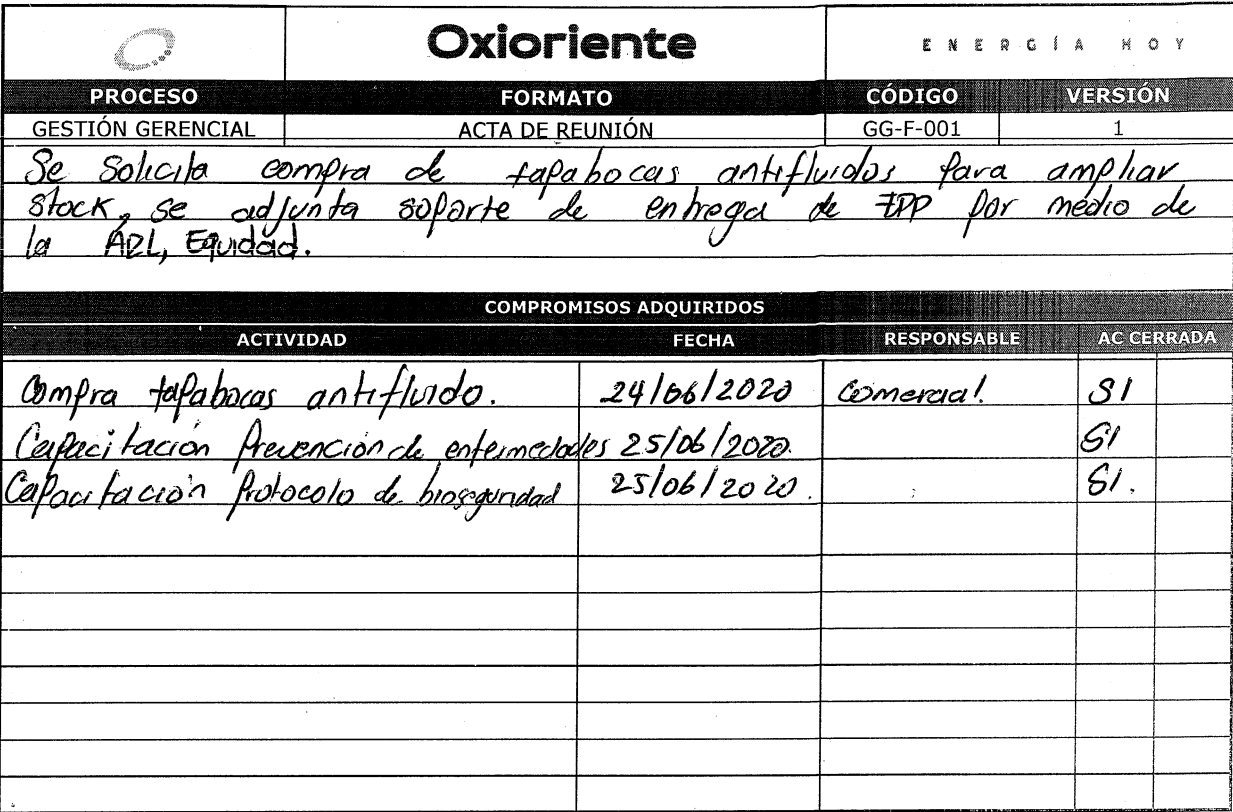 Oxioriente
ENERGÍA HOY
PROCESO FORMATO CÓDIGO VERSIÓN
GESTIÓN GERENCIAL ACTA DE REUNIÓN GG-F-001 1
Se solicita compra de tapabocas antifluidos para ampliar
stock, se adjunta soporte de entrega de EPP por medio de
la ARL, Equidad.
COMPROMISOS ADQUIRIDOS
ACTIVIDAD FECHA RESPONSABLE AC CERRADA
Compra tapabocas antifluido. 24/06/2020 Comercial. SI
Capacitación Prevención de enfermedades 25/06/2020. SI
Capacitación Protocolo de bioseguridad 25/06/2020. SI.